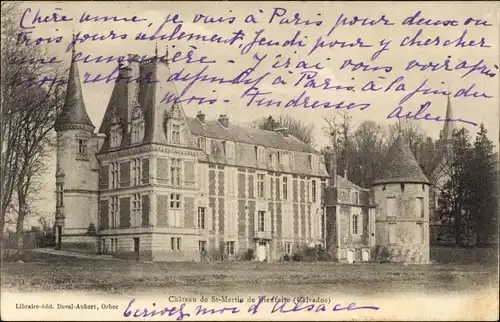 Chère amie, je vais à Paris pour deux ou
trois jours seulement, jeudi pour y chercher
une cuisinière - J'irai vous voir après
retour definitif à Paris à la fin du
mois - Tendresses
Château de St-Martin de Bienfaite (Calvados)
Libraire-édit. Duval-Aubert, Orbec
Ecrivez moi d'Alsace